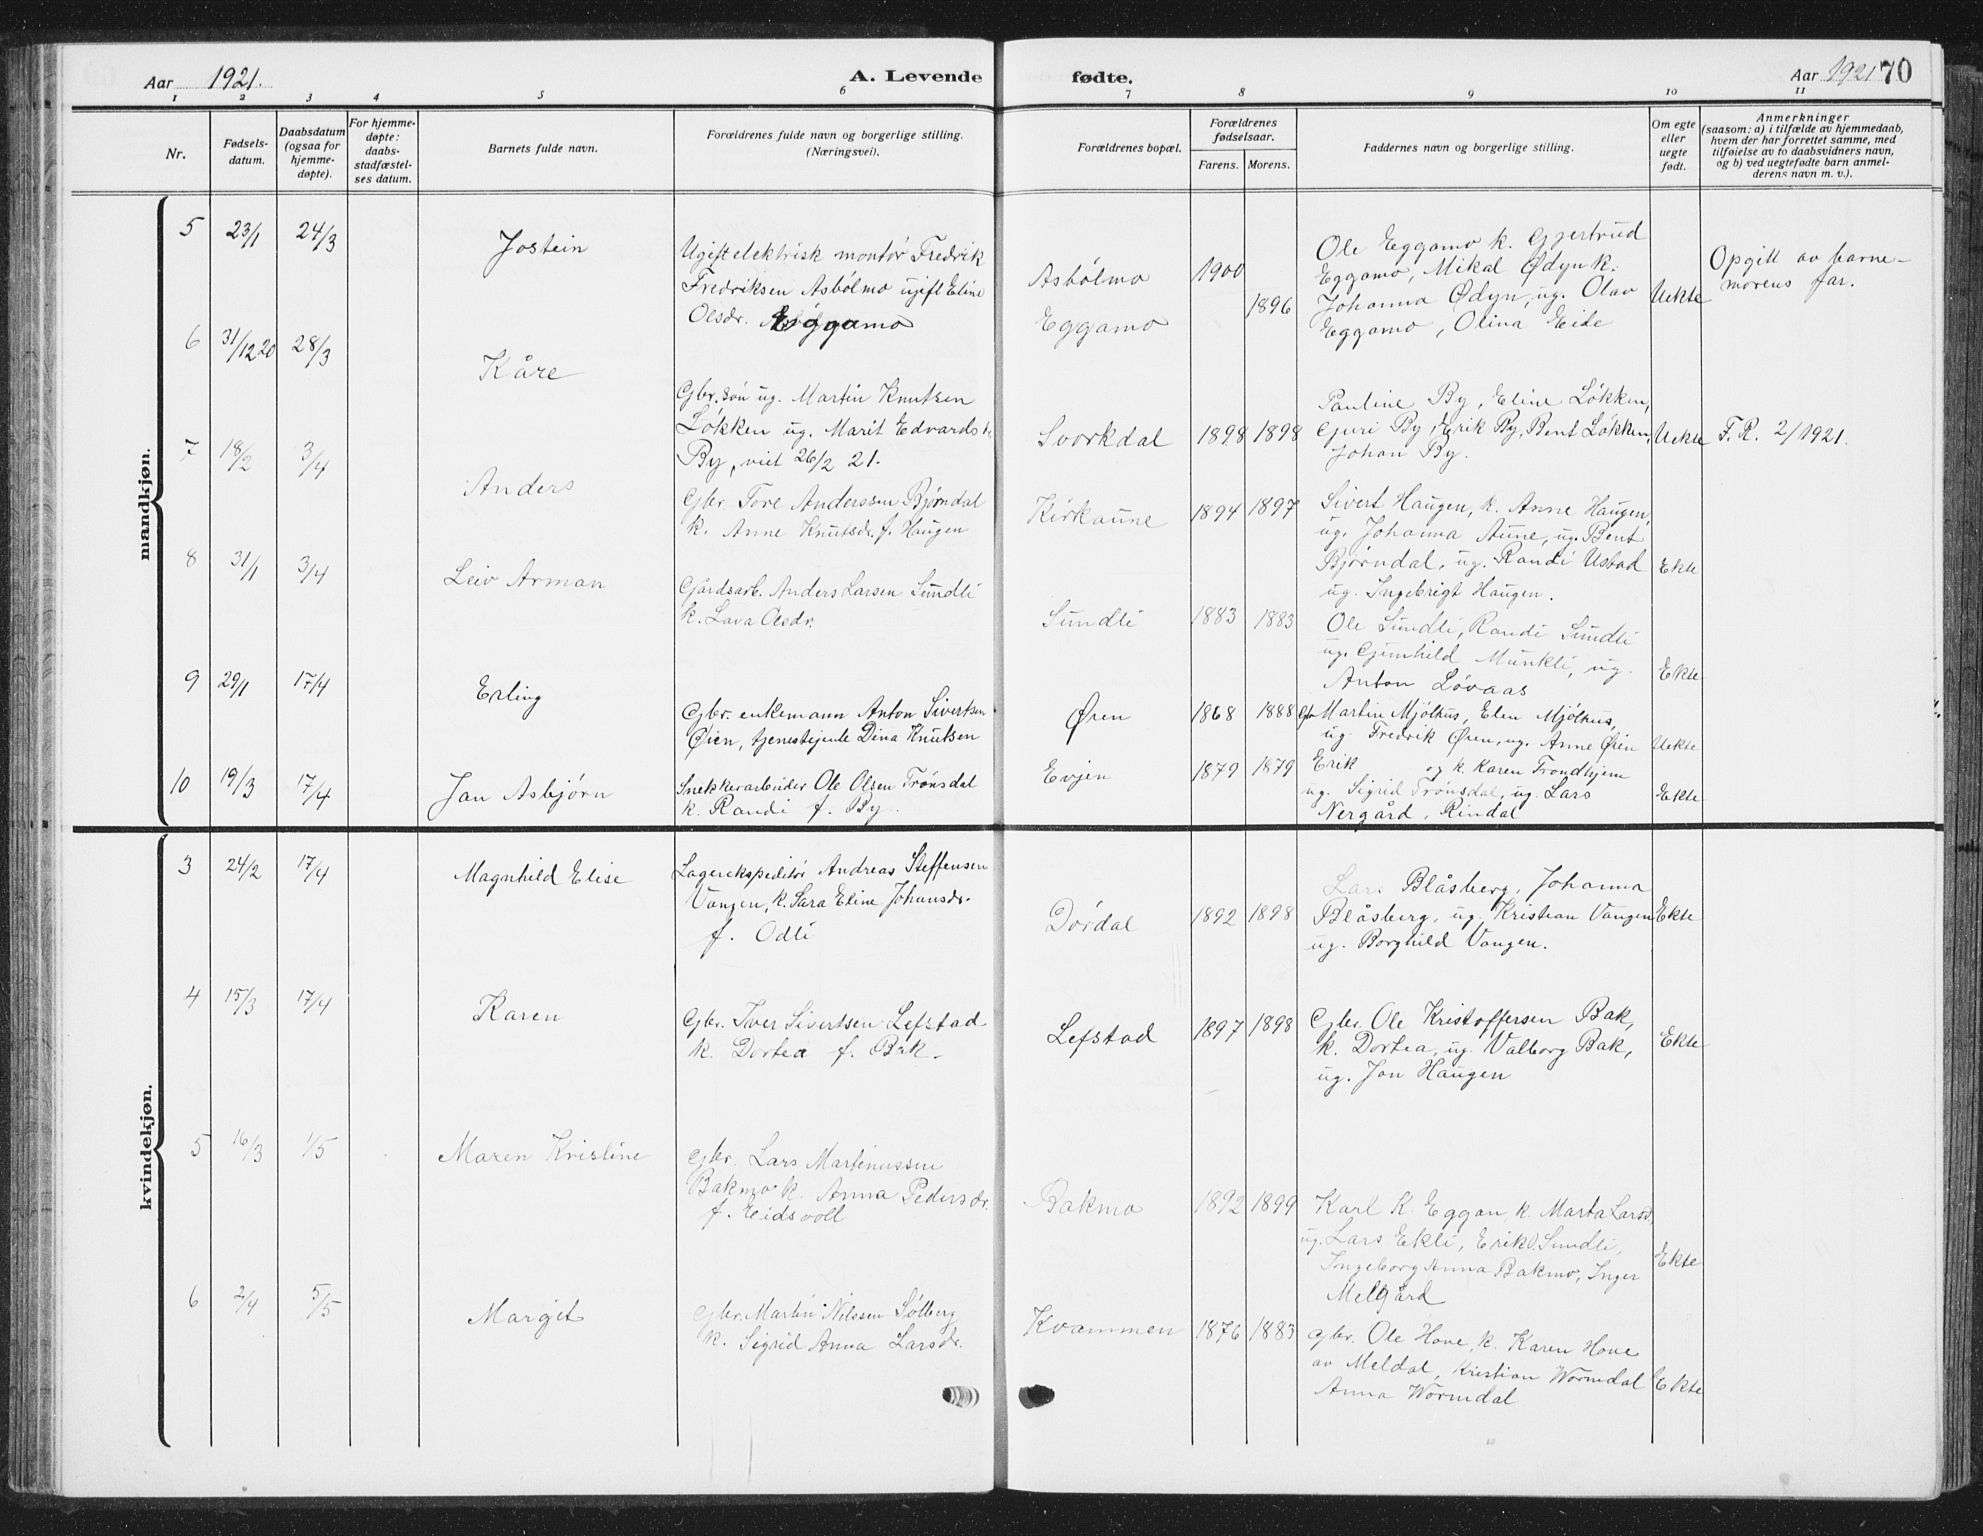 Aar 1921. A. Levende fødte. Aar 1921 70
1 2 3 4 5 6 7 8 9 10 11
Nr.
Fødsels-
datum.
Daabsdatum
(ogsaa for
hjemme-
døpte).
For hjemme-
døpte:
daabs-
stadfæstel-
ses datum.
Barnets fulde navn.
Forældrenes fulde navn og borgerlige stilling.
(Næringsvei).
Forældrenes bopæl.
Forældrenes
fødselsaar.
Farens. Morens.
Faddernes navn og borgerlige stilling.
Om egte
eller
uegte
født.
Anmerkninger
(saasom: a) i tilfælde av hjemmedaab,
hvem der har forrettet samme, med
tilføielse av to daabsvidners navn,
og b) ved uegtefødte barn anmel-
derens navn m. v.).
mandkjøn.
5 23/1 24/3 Jostein
Ugift elektrisk montør Fredrik
Fredriksen Asbólmo ugift Eline
Olsdr. Eggamo
Asbólmo 1900
Eggamo 1896
Ole Eggamo k. Gjertrud
Eggamo, Mikal Ødyn k.
Johanna Ødyn, ug. Olav
Eggamo, Olina Eide
Uekte
Opgitt av barne-
morens far.
6 31/12 20 28/3 Kåre
Gbr. søn ug. Martin Knutsen
Løkken ug. Marit Edvardsdr.
By, viet 26/2 21.
Svorkdal 1898 1898
Pauline By, Eline Løkken,
Guri By, Erik By, Bent Løkken,
Johan By.
Uekte F. R. 2/1921.
7 18/2 3/4 Anders
Gbr. Tore Anderssen Bjørndal
k. Anne Knutsdr. f. Haugen
Kirkaune 1894 1897
Sivert Haugen, k. Anne Haugen,
ug. Johanna Aune, ug. Bent
Bjørndal, ug. Randi Ustad
ug. Ingebrigt Haugen.
Ekte
8 31/1 3/4 Leiv Arman
Gårdsarb. Anders Larsen Sundli
k. Lava Olsdr.
Sundli 1883 1883
Ole Sundli, Randi Sundli
ug. Gunhild Munkli, ug.
Anton Løvaas
Ekte
9 29/1 17/4 Erling
Gbr. enkemann Anton Sivertsen
Øien, tjenestejente Dina Knutsen
Øren 1868 1888
Gbr Martin Mjólhus, Elen Mjólhus,
ug. Fredrik Øren, ug. Anne Øien
Uekte
10 19/3 17/4 Jan Asbjørn
Snekkerarbeider Ole Olsen Trønsdal
k. Randi f. By.
Evjen 1879 1879
Erik og k. Karen Trondhjem
ug. Sigrid Trønsdal, ug. Lars
Nergård, Rindal
Ekte
kvindekjøn.
3 24/2 17/4 Magnhild Elise
Lagerekspeditór Andreas Steffensen
Vangen, k. Sara Eline Johansdr.
f. Odli
Dórdal 1892 1898
Lars Blåsberg, Johanna
Blåsberg, ug. Kristian Vangen
ug. Borghild Vangen.
Ekte
4 15/3 17/4 Karen
Gbr. Iver Sivertsen Lefstad
k. Dortea f. Bak
Lefstad 1897 1898
Gbr. Ole Kristoffersen Bak,
k. Dortea, ug. Valborg Bak,
ug. Jon Haugen
Ekte
5 16/3 1/5 Maren Kristine
Gbr. Lars Martinussen
Bakmo k. Anna Pedersdr.
f. Eidsvoll
Bakmo 1892 1899
Karl K. Eggan, k. Marta Larsd,
ug. Lars Ekli, Erik O. Sundli,
Ingeborg Anna Bakmo, Inger
Melgård
Ekte
6 2/4 5/5 Margit
Gbr. Martin Nilssen Sólberg
k. Sigrid Anna Larsdr.
Kvammen 1876 1883
Gbr. Ole Hove, k. Karen Hove
av Meldal, Kristian Wormdal
Anna Wormdal
Ekte